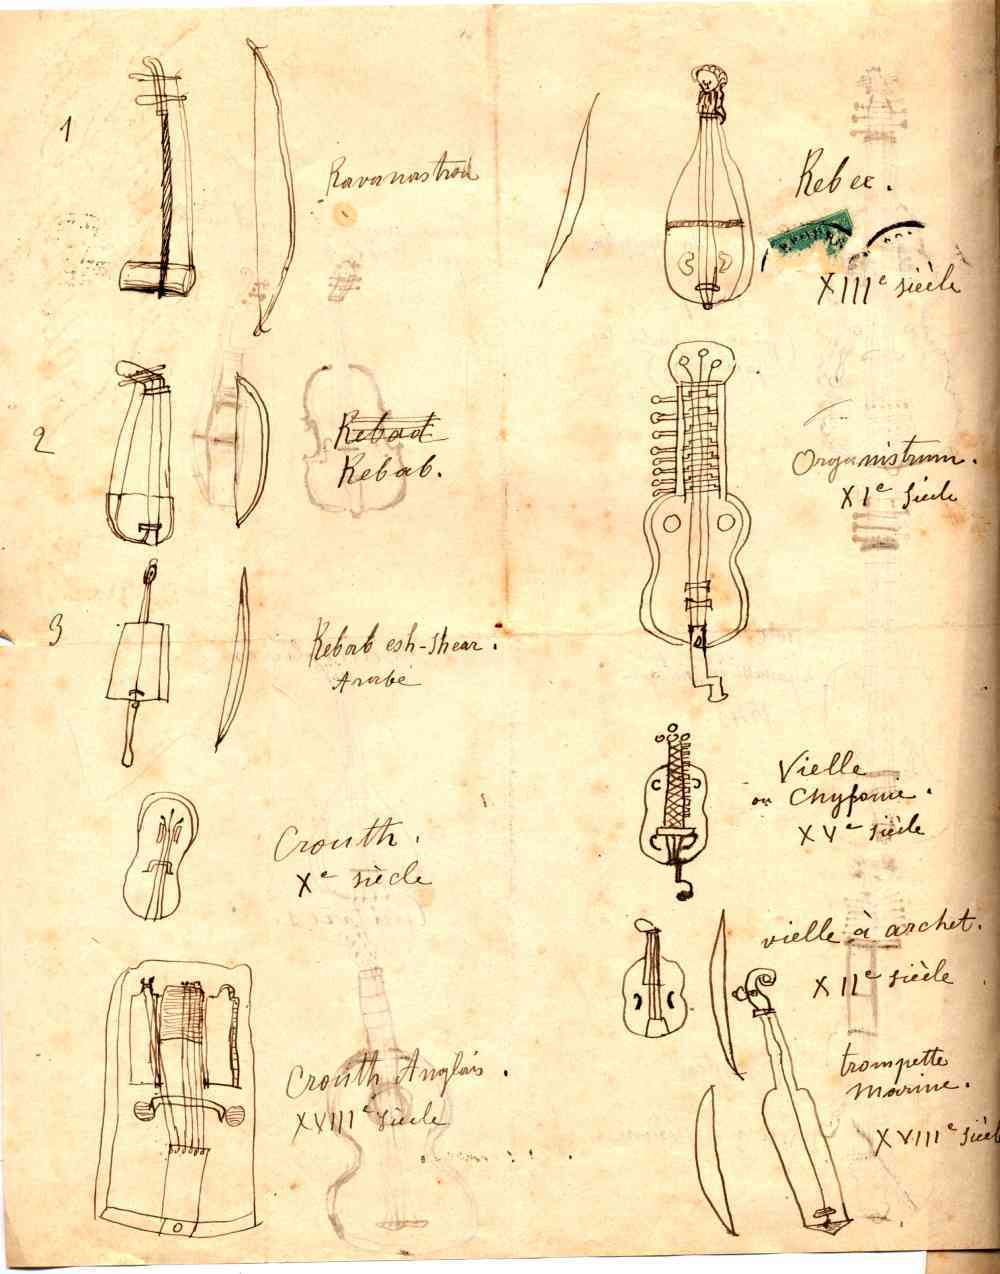 1
Ravanastron
2
Rebad
Rebab.
3
Rebab esh-shear.
Arabe
Crouth.
Xe siècle
Crouth Anglais.
XVIIIe siècle
Rebec.
XIIIe siècle
Organistrum.
XIe siècle
Vielle
ou Chyfonie.
XVe siècle
vielle à archet.
XIIe siècle
trompette
marine.
XVIIIe siècle